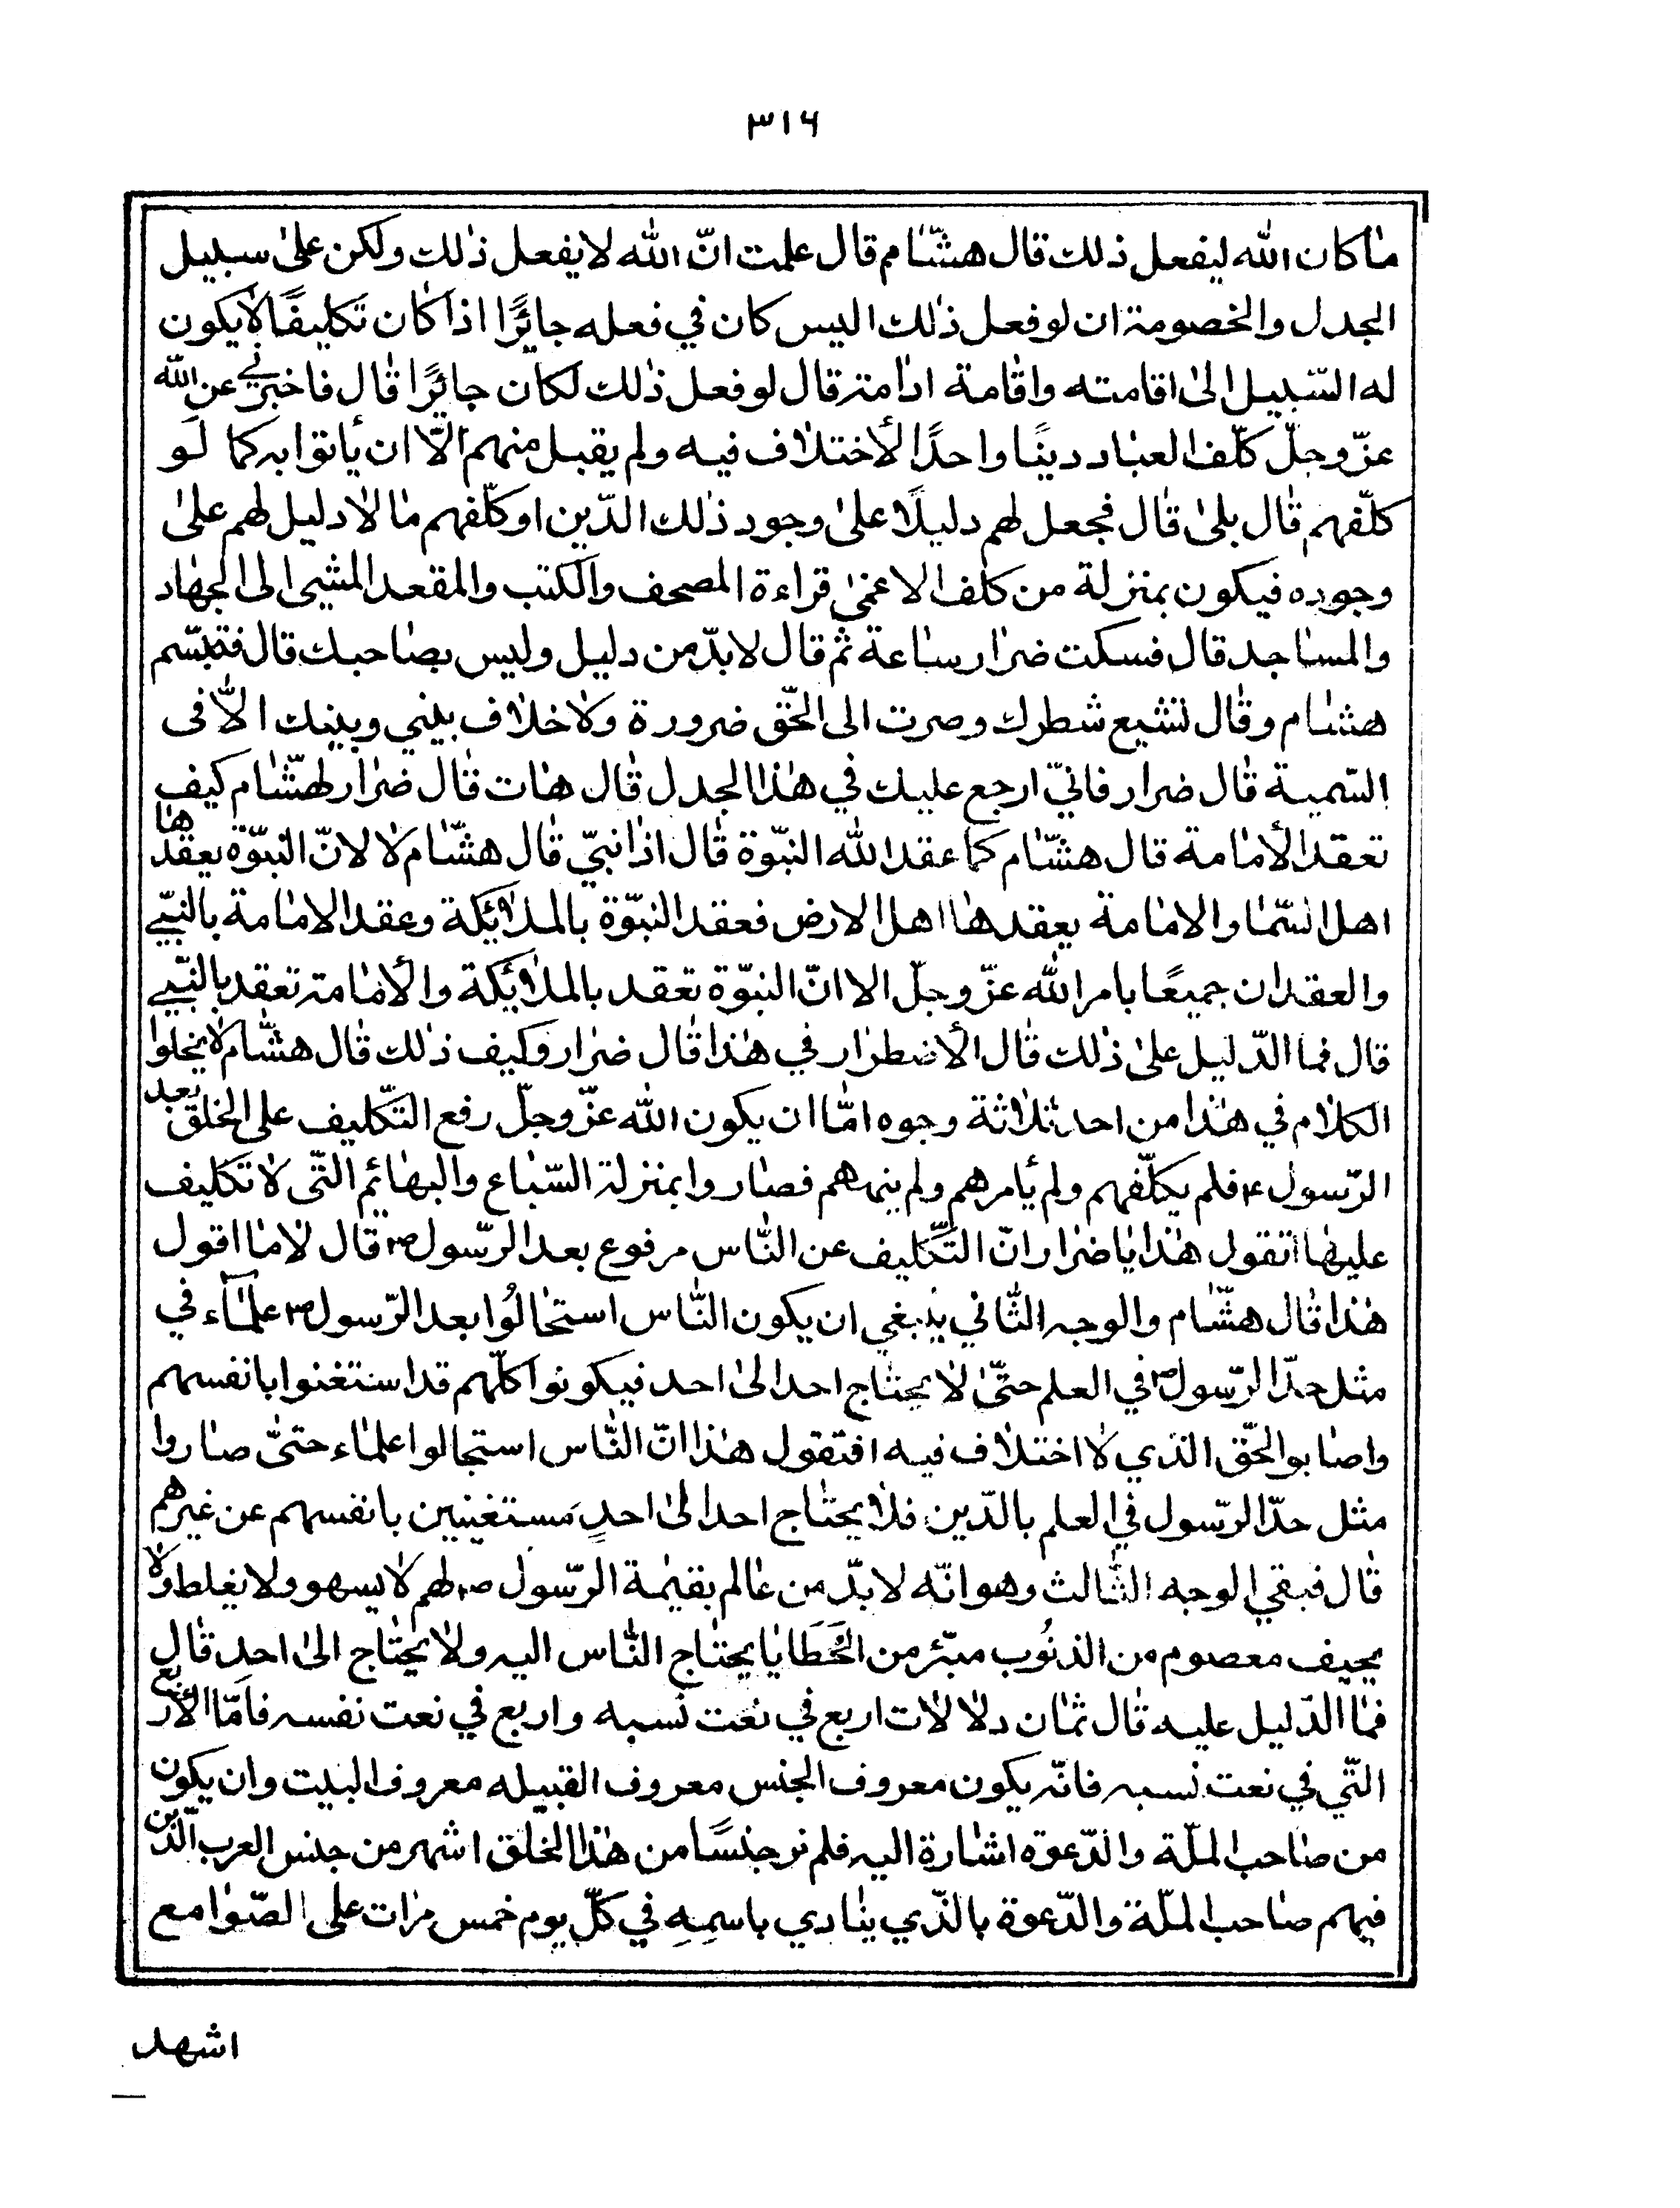 ٣١٦
ما كان الله ليفعل ذلك قال هشّام قال علمت انّ الله لا يفعل ذلك ولكن على سبيل
الجدل والخصومة ان لو فعل ذلك اليس كان في فعله جائرًا اذا كان تكليفًا لا يكون
له السّبيل الى اقامته واقامة ادامة قال لو فعل ذلك لكان جائرًا قال فاخبرني عن الله
عزّ وجلّ كلّف العباد دينًا واحدًا لأختلاف فيه ولم يقبل منهم الّا ان يأتوا به كما لو
كلّفهم قال بلى قال فجعل لهم دليلًا على وجود ذلك الدّين او كلّفهم ما لا دليل لهم على
وجوده فيكون بمنزلة من كلف الاعمى قراءة المصحف والكتب والمقعد المشيى الى الجهاد
والمساجد قال فسكت ضرار ساعة ثم قال لا بدّ من دليل وليس بصاحبك قال فتبسّم
هشام وقال تشيع شطرك وصرت الى الحّق ضرورة ولا خلاف بيني وبينك الّا فى
السّمية قال ضرار فانيّ ارجع عليك في هذا الجدل قال هات قال ضرار لهشّام كيف
تعقد الأمامة قال هشّام كما عقد الله النبّوة قال اذا نبيّ قال هشّام لا لانّ النبّوة يعقدها
اهل السّما والامامة يعقدها اهل الارض فعقد النبّوة بالملائكة وعقد الامامة بالنبّي
والعقدان جميعًا بامر الله عزّ وجلّ الا انّ النبّوة تعقد بالملائكة والأمامة تعقد بالنبّي
قال فما الدّليل على ذلك قال الأضطرار في هذا قال ضرار وكيف ذلك قال هشّام لا يخلوا
الكلام في هذا من احد ثلاثة وجوه امّا ان يكون الله عزّ وجلّ رفع التكّليف على الخلق بعد
الرّسول ۴ فلم يكلّفهم ولم يأمرهم ولم ينههم فصاروا بمنزلة السّباع والبهائم التّى لا تكليف
عليها اتقول هذا يا ضرار انّ التكّليف عن النّاس مرفوع بعد الرّسول ص قال لا ما اقول
هذا قال هشّام والوجه الثّاني ينبغي ان يكون النّاس استحالُوا بعد الرّسول ص علمآء في
مثل حدّ الرّسول ص في العلم حتّى لا يحتاج احد الى احد فيكونوا كلّهم قد استغنوا بانفسهم
واصابوا الحّق الذي لا اختلاف فيه افتقول هذا انّ النّاس استحالوا علماء حتىّ صاروا
مثل حدّ الرّسول في العلم بالدّين فلا يحتاج احد الى احدٍ مستغنيين بانفسهم عن غيرهم
قال فبقي الوجه الثّالث وهو انّه لا بدّ من عالم بقيمة الرّسول ص لهم لا يسهو ولا يغلط ولا
يحيف معصوم من الذنُوب مبّرء من الخَطَايا يحتاج النّاس اليه ولا يحتاج الى احد قال
فما الدّليل عليه قال ثمان دلالات اربع في نعت نسبه واربع في نعت نفسه فامّا الأربع
التّي في نعت نسبه فانّه يكون معروف الجنس معروف القبيله معروف البيت وان يكون
من صاحب الملّة والدّعوة اشارة اليه فلم نر جنسًا من هذا الخلق اشهر من جنس العرب الّذين
فيهم صاحب الملّة والدّعوة بالذّي ينادي باسمِهِ في كلّ يوم خمس مرات على الصّوامع
اشهد